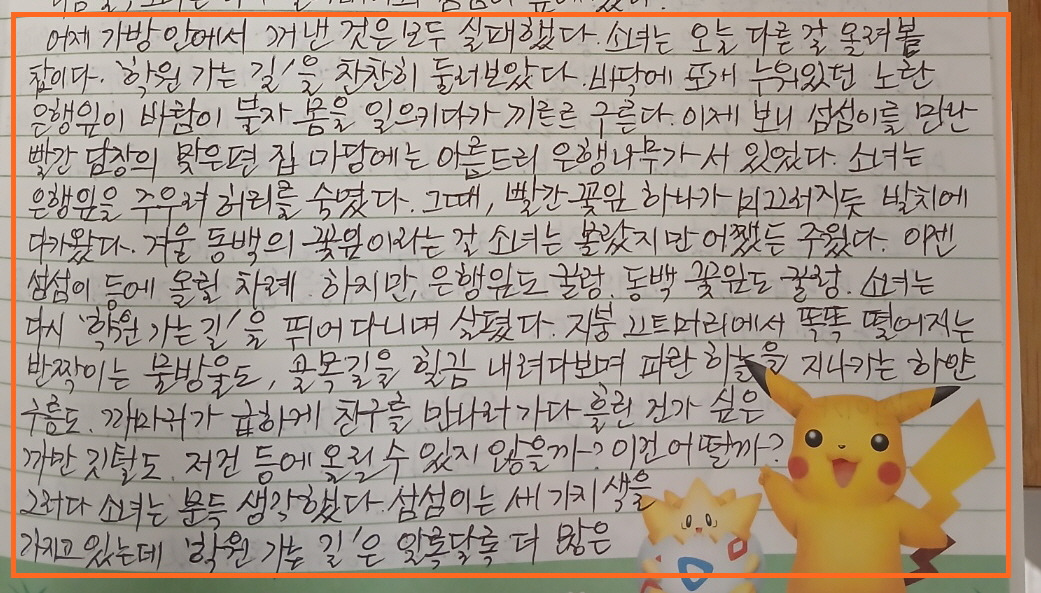 어제 가방 안에서 꺼낸 것은 모두 실패했다. 소녀는 오늘 다른 걸 올려볼
참이다. '학원 가는 길'을 찬찬히 둘러보았다. 바닥에 포개 누워있던 노란
은행잎이 바람이 불자 몸을 일으키다가 끼르르 구른다. 이제 보니 섬섬이를 만난
빨간 담장의 맞은편 집 마당에는 아름드리 은행나무가 서 있었다. 소녀는
은행잎을 주우려 허리를 숙였다. 그때, 빨간 꽃잎 하나가 미끄러지듯 발치에
다가왔다. 겨울 동백의 꽃잎이라는 걸 소녀는 몰랐지만 어쨌든 주웠다. 이젠
섬섬이 등에 올릴 차례. 하지만, 은행잎도 꿀렁. 동백 꽃잎도 꿀렁. 소녀는
다시 '학원 가는 길'을 뛰어다니며 살폈다. 지붕 끄트머리에서 똑똑 떨어지는
반짝이는 물방울도, 골목길을 힐끔 내려다보며 파란 하늘을 지나가는 하얀
구름도. 까마귀가 급하게 친구를 만나러 가다 흘린 건가 싶은
까만 깃털도. 저건 등에 올릴 수 있지 않을까? 이건 어떨까?
그러다 소녀는 문득 생각했다. 섬섬이는 세 가지 색을
가지고 있는데 '학원 가는 길'은 알록달록 더 많은